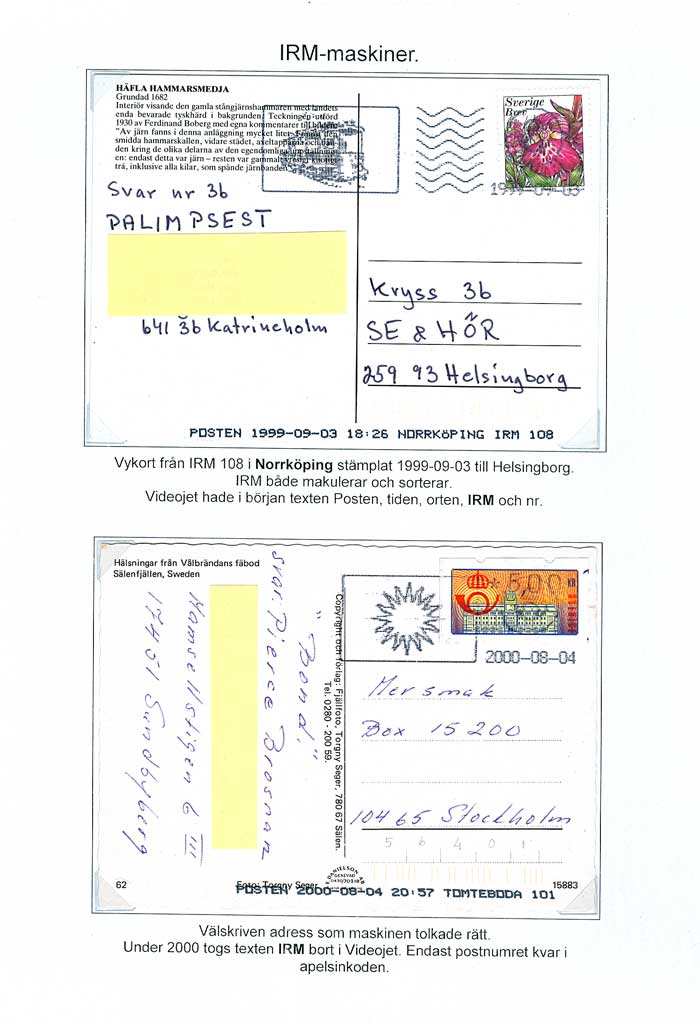 IRM-maskiner.
HÄFLA HAMMARSMEDJA
Grundad 1682
Interiör visande den gamla stångjärnshammaren med landets
enda bevarade tyskhärd i bakgrunden. Teckningen utförd
1930 av Ferdinand Boberg med egna kommentarer till bilden:
"Av järn fanns i denna anläggning mycket litet. Förutom den
smidda hammarskallen, vidare städet, axeltapparna och ban-
den kring de olika delarna av den egendomliga uppställning-
en: endast detta var järn – resten var gammalt
trä, inklusive alla kilar, som spände järnbanden."
Sverige
Brev
1999-09-03
Svar nr 3b
PALIMPSEST
641 36 Katrineholm
Kryss 3b
SE & HÖR
259 93 Helsingborg
POSTEN 1999-09-03 18:26 NORRKÖPING IRM 108
Vykort från IRM 108 i Norrköping stämplat 1999-09-03 till Helsingborg.
IRM både makulerar och sorterar.
Videojet hade i början texten Posten, tiden, orten, IRM och nr.
Hälsningar från Vålbrändans fäbod
Sälenfjällen, Sweden
"Bond."
svar: Pierce Brosnan
Mamsellstigen 6 III
17451 Sundbyberg
Copyright och förlag: Fjällfoto, Torgny Seger, 780 67 Sälen.
Tel. 0280 - 200 59.
*5,00
2000-08-04
Mersmak
Box 15200
10465 Stockholm
5 6 4 0 1
62
Foto: Torgny Seger
DANIELSON
GENEVAD
15883
POSTEN 2000-08-04 20:57 TOMTEBODA 101
Välskriven adress som maskinen tolkade rätt.
Under 2000 togs texten IRM bort i Videojet. Endast postnumret kvar i
apelsinkoden.